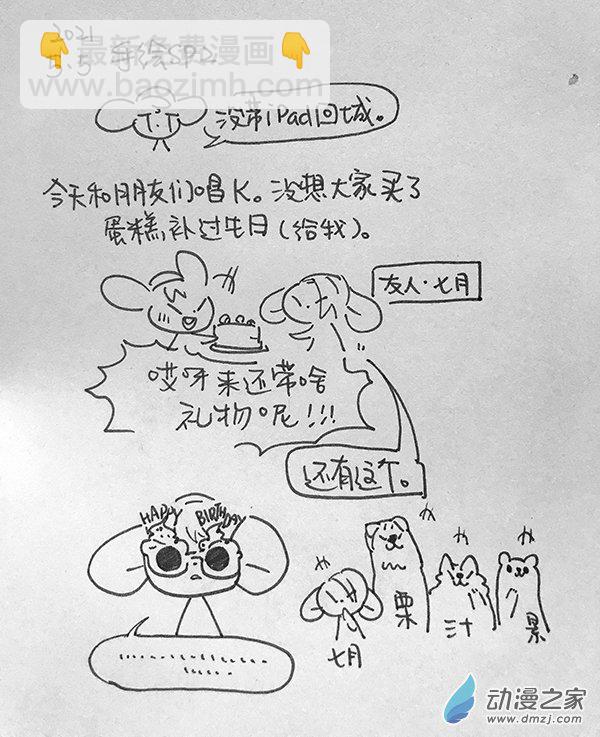 2021
5.5 手绘SP2
👇最新免费漫画👇
www.baozimh.com
没带iPad回城。
今天和朋友们唱K。没想大家买了
蛋糕,补过生日(给我)。
友人·七月
哎呀来还带啥
礼物呢!!!
还有这个。
HAPPY BIRTHDAY
七月
栗
汁
景
动漫之家
www.dmzj.com